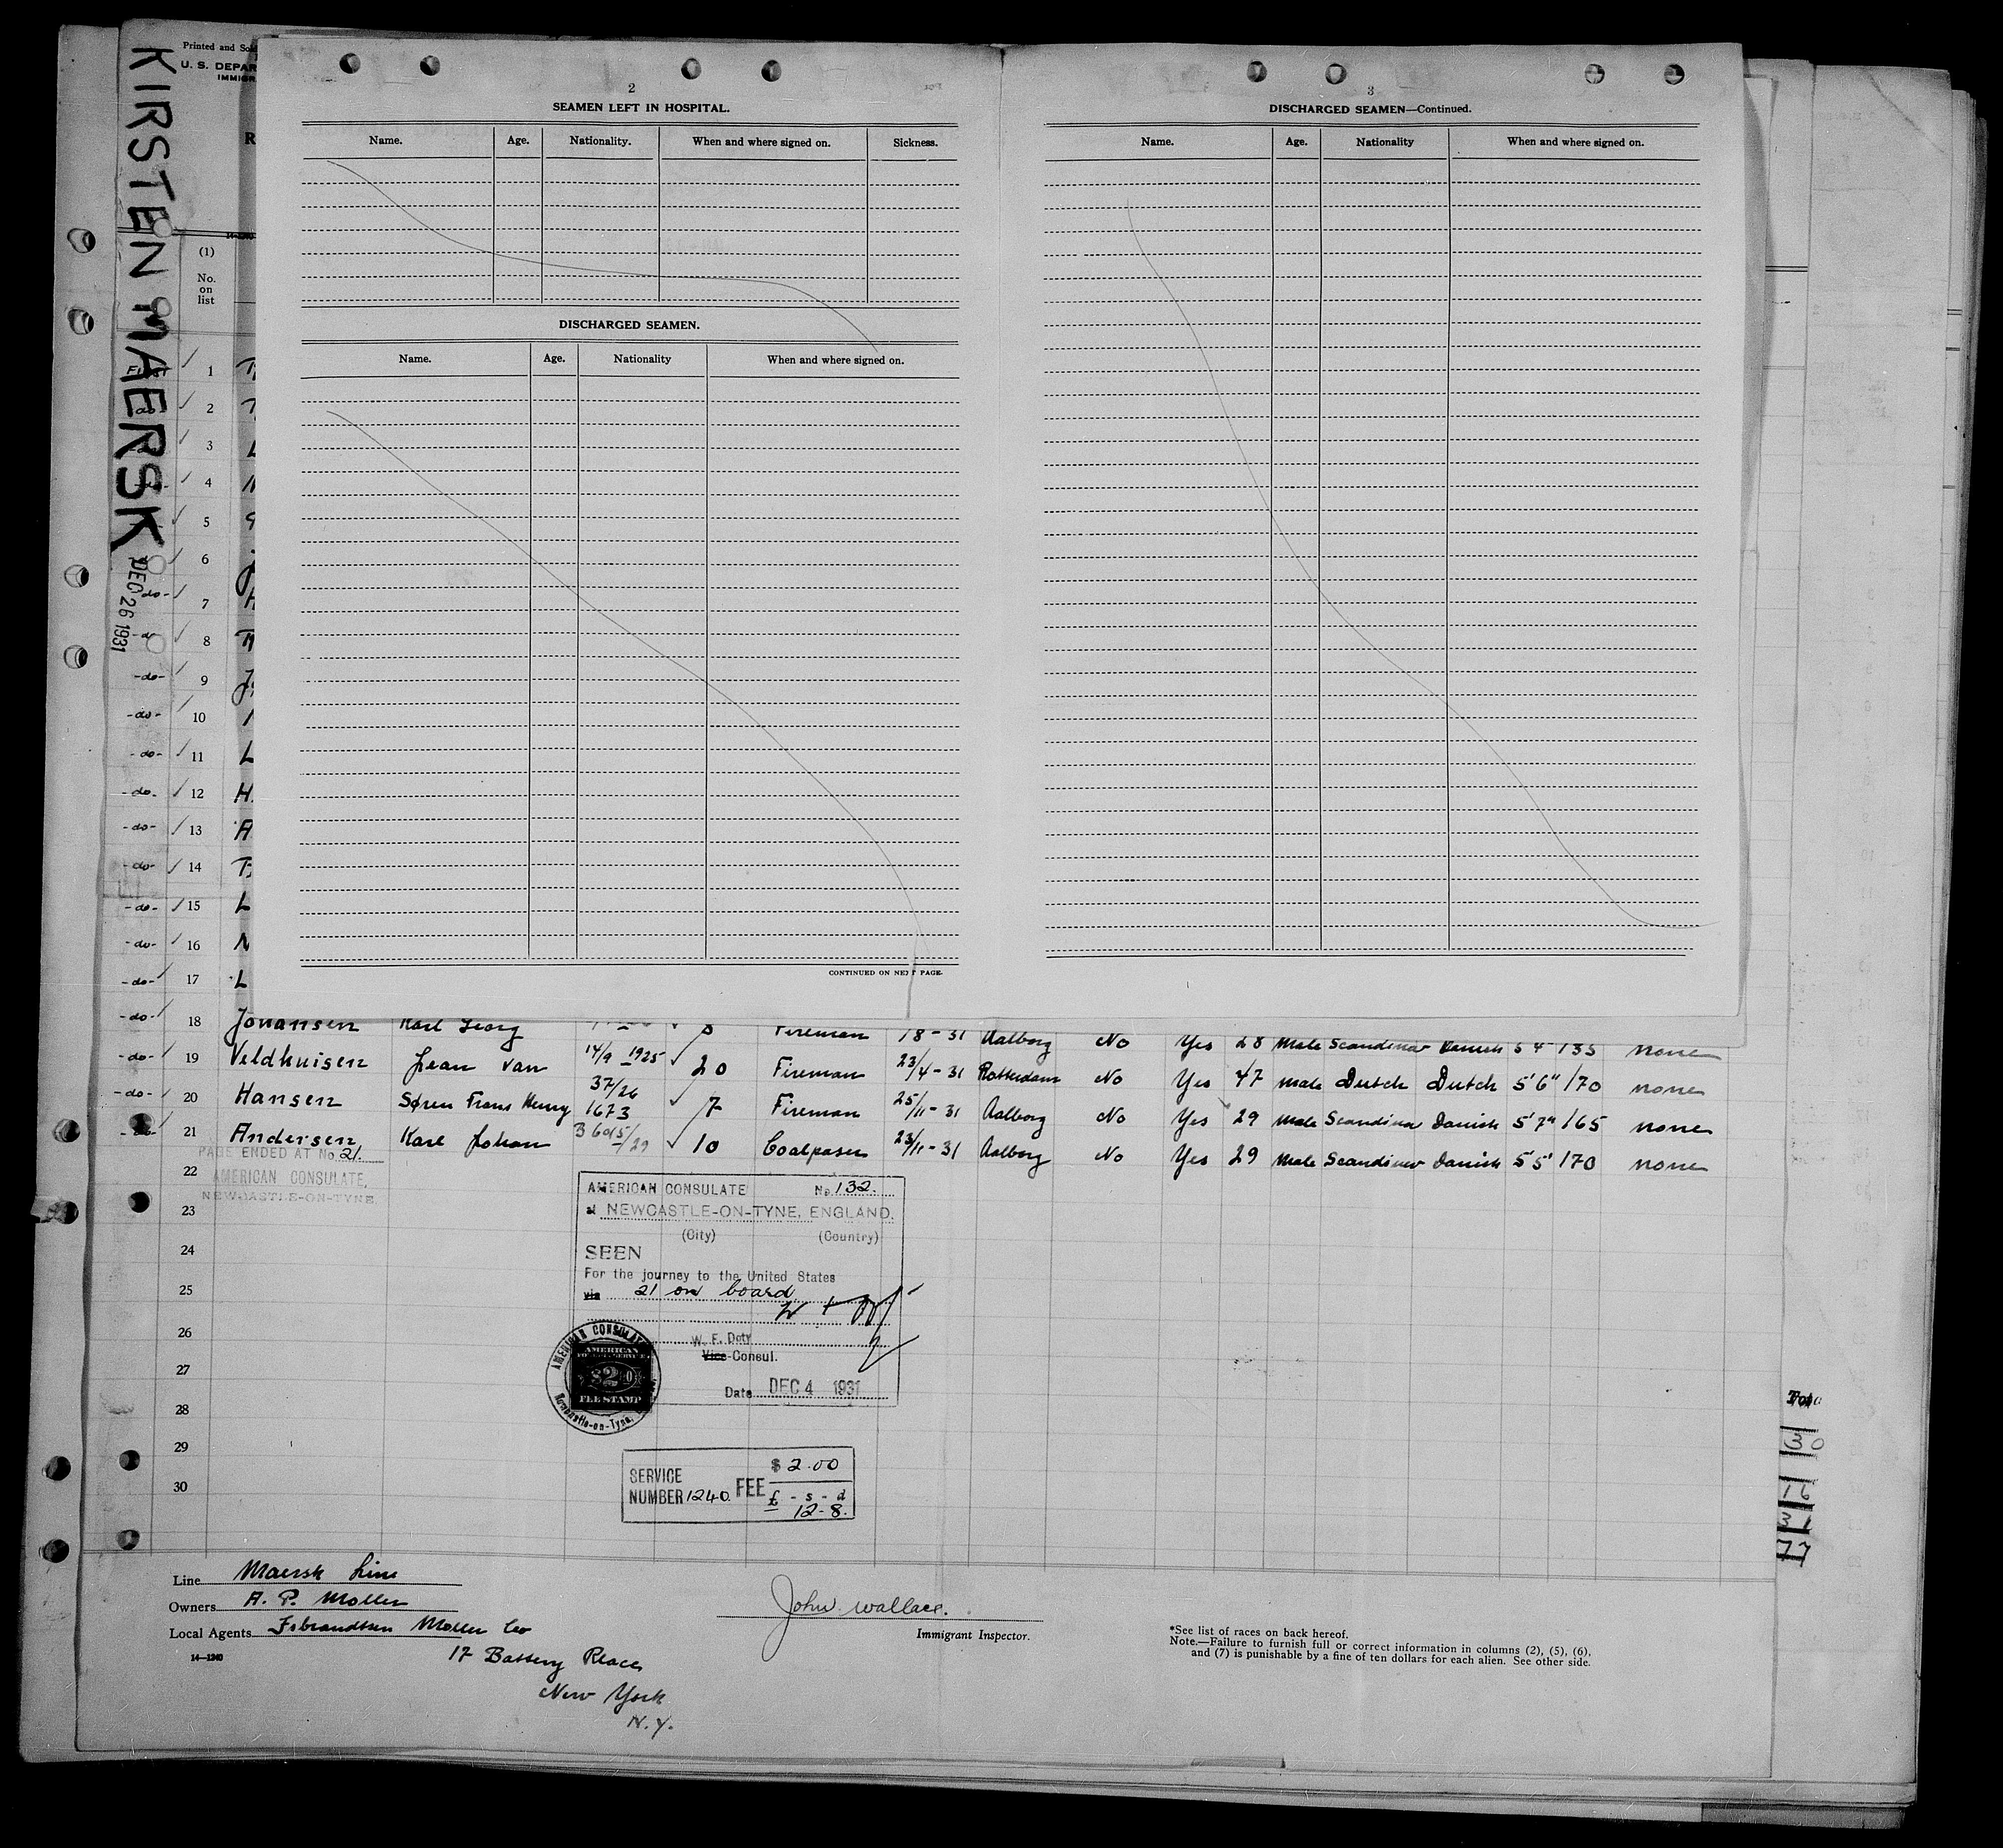 KIRSTEN MAERSK
DEC 26 1931
Printed and Sol
U. S. DEPAR
IMMIGR
(1)
No.
on
list
2
SEAMEN LEFT IN HOSPITAL.
Name. Age. Nationality. When and where signed on. Sickness.
DISCHARGED SEAMEN.
Name. Age. Nationality When and where signed on.
CONTINUED ON NEXT PAGE.
3
DISCHARGED SEAMEN—Continued.
Name. Age. Nationality When and where signed on.
First 1
do 2
3
4
5
6
-do- 7
8
-do- 9
-do- 10
-do- 11 L
-do- 12 H
-do- 13 A
-do- 14
-do- 15 L
-do- 16 N
-do- 17 L
-do- 18 Johansen Karl Georg Fireman 18-31 Aalborg No Yes 28 Male Scandinav Danish 5'4" 135 none
-do- 19 Veldhuisen Jean van 14/9 1925 20 Fireman 23/4-31 Rotterdam No Yes 47 Male Dutch Dutch 5'6" 170 none
-do- 20 Hansen Søren Frans Henry 37/26 1673 7 Fireman 25/11-31 Aalborg No Yes 29 Male Scandinav Danish 5'7" 165 none
-do- 21 Andersen Karl Johan B 6015/29 10 Coalpasser 23/11-31 Aalborg No Yes 29 Male Scandinav Danish 5'5' 170 none
PAGE ENDED AT No. 21.
AMERICAN CONSULATE,
NEWCASTLE-ON-TYNE
22
23
24
25
26
27
28
29
30
AMERICAN CONSULATE No. 132.
at NEWCASTLE-ON-TYNE, ENGLAND.
(City) (Country)
SEEN
For the journey to the United States
via 21 on board
W. F. Doty
Vice-Consul.
Date DEC 4 1931
AMERICAN CONSULATE
Newcastle-on-Tyne,
AMERICAN
FOREIGN SERVICE
$2.00
FEE STAMP
SERVICE
NUMBER 1240. FEE $ 2.00
£ - s - d
12-8.
Total
30
16
31
77
Line Maersk Line
Owners A. P. Moller
Local Agents Isbrandtsen Moller Co
17 Battery Place
New York
N.Y.
14—1240
John Wallace.
Immigrant Inspector.
*See list of races on back hereof.
Note.—Failure to furnish full or correct information in columns (2), (5), (6),
and (7) is punishable by a fine of ten dollars for each alien. See other side.